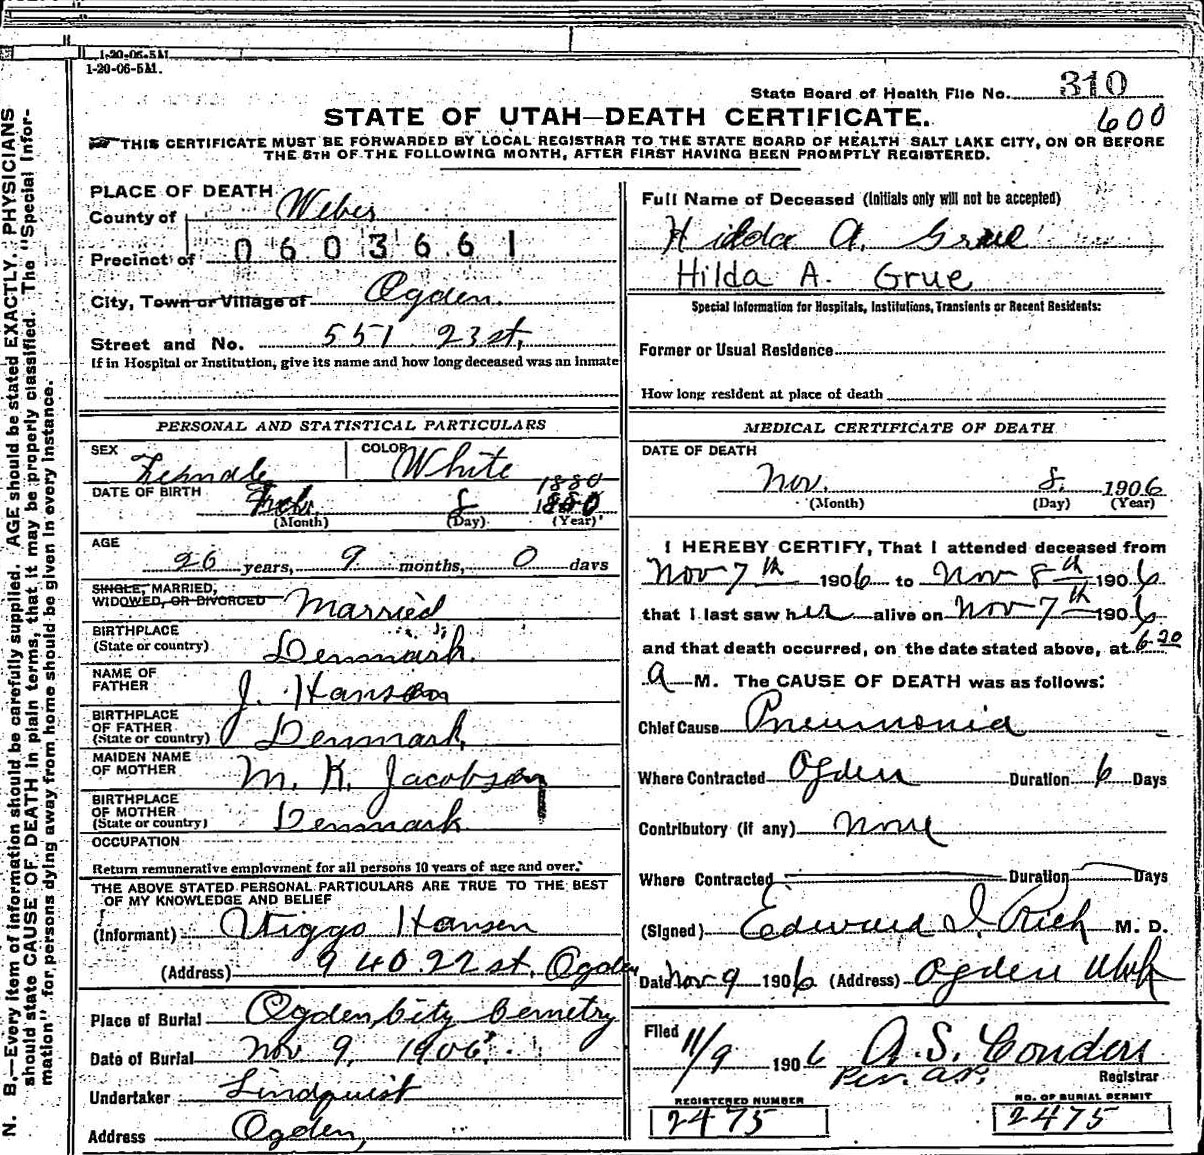 1-20-06-5M.
1-20-06-5M.
State Board of Health File No. 310
600
STATE OF UTAH—DEATH CERTIFICATE.
THIS CERTIFICATE MUST BE FORWARDED BY LOCAL REGISTRAR TO THE STATE BOARD OF HEALTH SALT LAKE CITY, ON OR BEFORE
THE 5TH OF THE FOLLOWING MONTH, AFTER FIRST HAVING BEEN PROMPTLY REGISTERED.
N. B.—Every item of information should be carefully supplied. AGE should be stated EXACTLY. PHYSICIANS
should state CAUSE OF DEATH in plain terms, that it may be properly classified. The "Special Infor-
mation" for persons dying away from home should be given in every instance.
PLACE OF DEATH
County of Weber
Precinct of 0603661
City, Town or Village of Ogden.
Street and No. 551 23 st.
If in Hospital or Institution, give its name and how long deceased was an inmate
PERSONAL AND STATISTICAL PARTICULARS
SEX Female COLOR White
1880
DATE OF BIRTH Feb. 8 1880
(Month) (Day) (Year)
AGE
26 years, 9 months, 0 days
SINGLE, MARRIED,
WIDOWED, OR DIVORCED Married
BIRTHPLACE
(State or country) Denmark.
NAME OF
FATHER J. Hansen
BIRTHPLACE
OF FATHER
(State or country) Denmark,
MAIDEN NAME
OF MOTHER M. K. Jacobsen
BIRTHPLACE
OF MOTHER
(State or country) Denmark.
OCCUPATION
Return remunerative employment for all persons 10 years of age and over.
THE ABOVE STATED PERSONAL PARTICULARS ARE TRUE TO THE BEST
OF MY KNOWLEDGE AND BELIEF
(Informant) Viggo Hansen
(Address) 940 22 st. Ogden
Place of Burial Ogden City Cemetry
Date of Burial Nov 9, 1906.
Undertaker Lindquist
Address Ogden,
Full Name of Deceased (Initials only will not be accepted)
Hilda A. Grue
Hilda A. Grue
Special Information for Hospitals, Institutions, Transients or Recent Residents:
Former or Usual Residence
How long resident at place of death
MEDICAL CERTIFICATE OF DEATH
DATE OF DEATH
Nov. 8. 1906
(Month) (Day) (Year)
I HEREBY CERTIFY, That I attended deceased from
Nov 7th 1906 to Nov 8th 1906
that I last saw her alive on Nov 7th 1906
and that death occurred, on the date stated above, at 6-20
a M. The CAUSE OF DEATH was as follows:
Chief Cause Pneumonia
Where Contracted Ogden Duration 6 Days
Contributory (if any) None
Where Contracted Duration Days
(Signed) Edward I. Rich M. D.
Date Nov 9 1906 (Address) Ogden Utah
Filed 11/9 1906 A. S. Condon
Registrar
REGISTERED NUMBER NO. OF BURIAL PERMIT
2475 2475